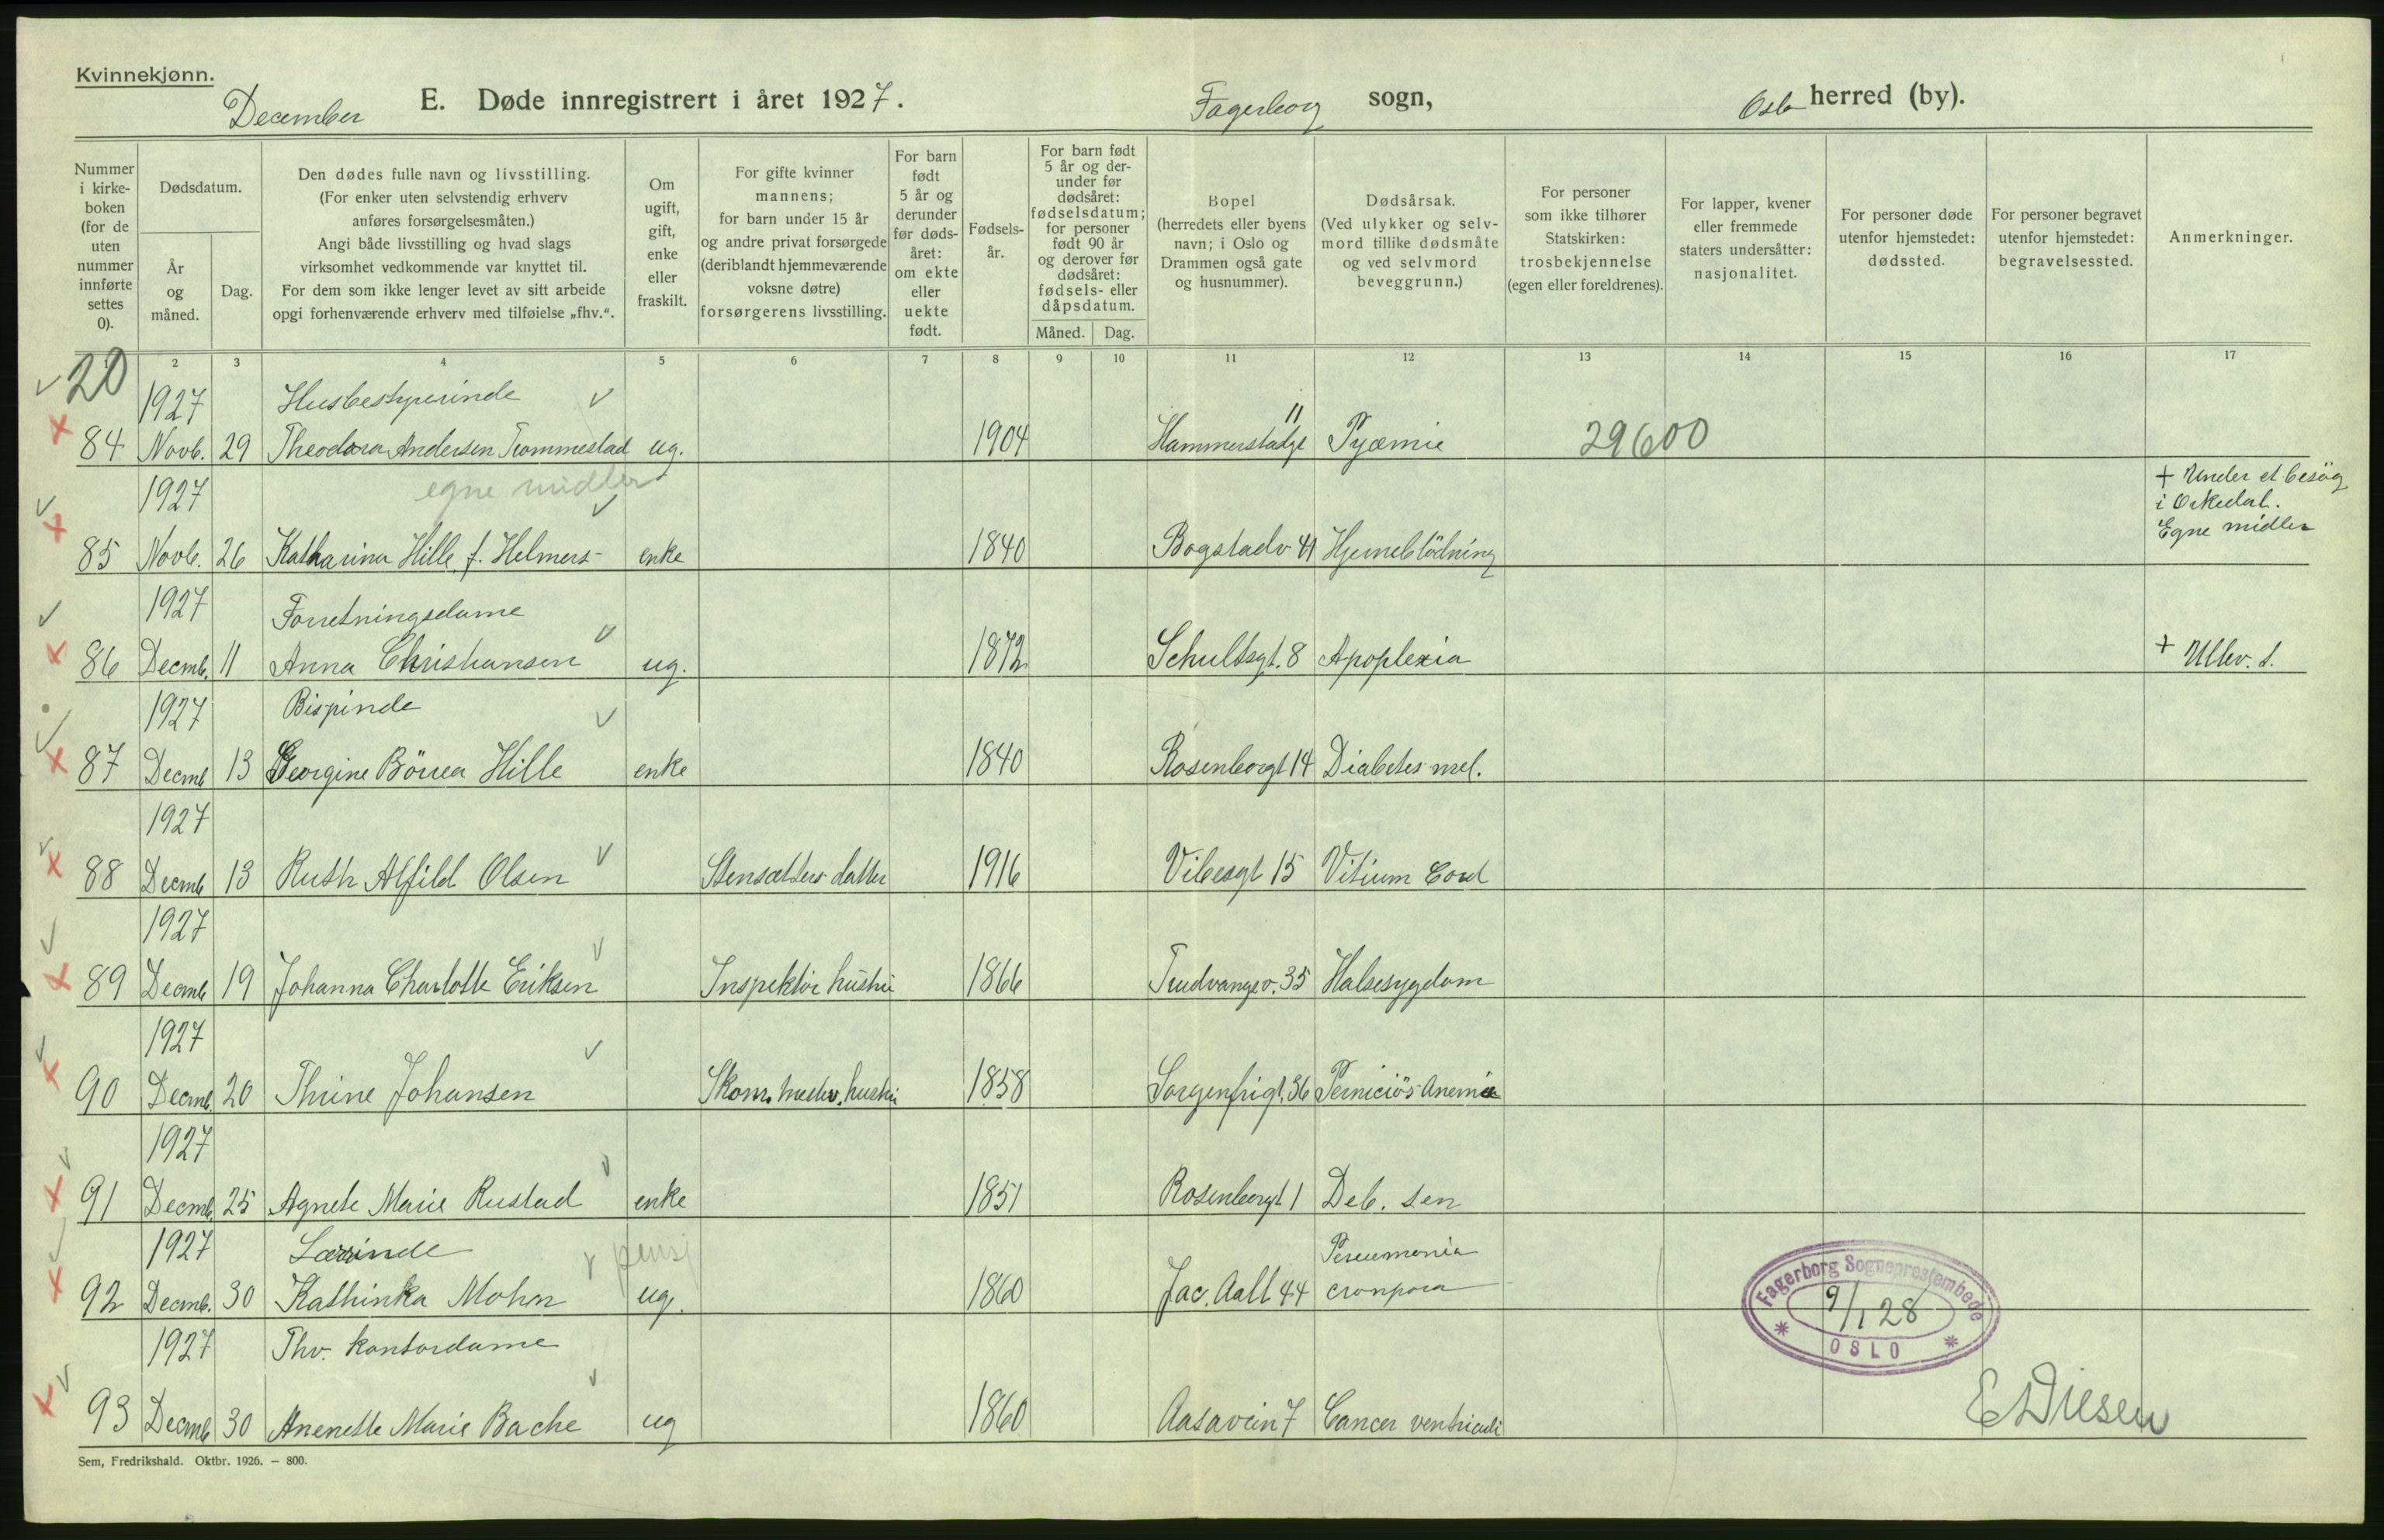 Kvinnekjønn.
December E. Døde innregistrert i året 1927. Fagerborg sogn, Oslo herred (by).
Nummer i kirkeboken (for de uten nummer innførte settes 0).
Dødsdatum.
År og måned.
Dag.
Den dødes fulle navn og livsstilling.
(For enker uten selvstendig erhverv
anføres forsørgelsesmåten.)
Angi både livsstilling og hvad slags
virksomhet vedkommende var knyttet til.
For dem som ikke lenger levet av sitt arbeide
opgi forhenværende erhverv med tilføielse „fhv.“.
Om
ugift,
gift,
enke
eller
fraskilt.
For gifte kvinner
mannens;
for barn under 15 år
og andre privat forsørgede
(deriblandt hjemmeværende
voksne døtre)
forsørgerens livsstilling.
For barn
født
5 år og
derunder
før døds-
året:
om ekte
eller
uekte
født.
Fødsels-
år.
For barn født
5 år og der-
under før
dødsåret:
fødselsdatum;
for personer
født 90 år
og derover før
dødsåret:
fødsels- eller
dåpsdatum.
Måned. Dag.
Bopel
(herredets eller byens
navn; i Oslo og
Drammen også gate
og husnummer).
Dødsårsak.
(Ved ulykker og selv-
mord tillike dødsmåte
og ved selvmord
beveggrunn.)
For personer
som ikke tilhører
Statskirken:
trosbekjennelse
(egen eller foreldrenes).
For lapper, kvener
eller fremmede
staters undersåtter:
nasjonalitet.
For personer døde
utenfor hjemstedet:
dødssted.
For personer begravet
utenfor hjemstedet:
begravelsessted.
Anmerkninger.
2 3 4 5 6 7 8 9 10 11 12 13 14 15 16 17
20
1927 Husbestyrerinde 11
84 Novb. 29 Theodora Andersen Trommestad ug. 1904 Hammerstadgt Pyæmie 29600
1927 egne midler + Under et besög
i Orkedal.
Egne midler
85 Novb. 26 Katharina Hille f. Helmers enke 1840 Bogstadv 41 Hjerneblödning
1927 Forretningsdame
86 Decmb. 11 Anna Christiansen ug. 1872 Schultsgt. 8 Apoplexia + Ullev. s.
1927 Bispinde
87 Decmb 13 Georgine Börrea Hille enke 1840 Rosenborgt 14 Diabetes mel.
1927
88 Decmb 13 Ruth Alfild Olsen Stensætters datter 1916 Vibesgt 15 Vitium Cord
1927
89 Decmb 19 Johanna Charlotte Eriksen Inspektör hustru 1866 Trudvangsv. 35 Halsesygdom
1927
90 Decmb. 20 Thrine Johansen Skom. mester, hustru 1858 Sorgenfrigt. 36 Perniciös Anemie
1927
91 Decmb. 25 Agnete Marie Rustad enke 1851 Rosenborgt 1 Deb. sen
1927 Lærerinde pensj Pneumonia
92 Decmb. 30 Kathinka Mohn ug. 1860 Jac. Aall 44 crouposa
1927 Fhv. kontordame
93 Decmb 30 Anenette Marie Bache ug 1860 Aasavein 7 Cancer ventriculi
Fagerborg Sogneprestembede
9/1 28
* OSLO *
E Diesen
Sem, Fredrikshald. Oktbr. 1926. — 800.